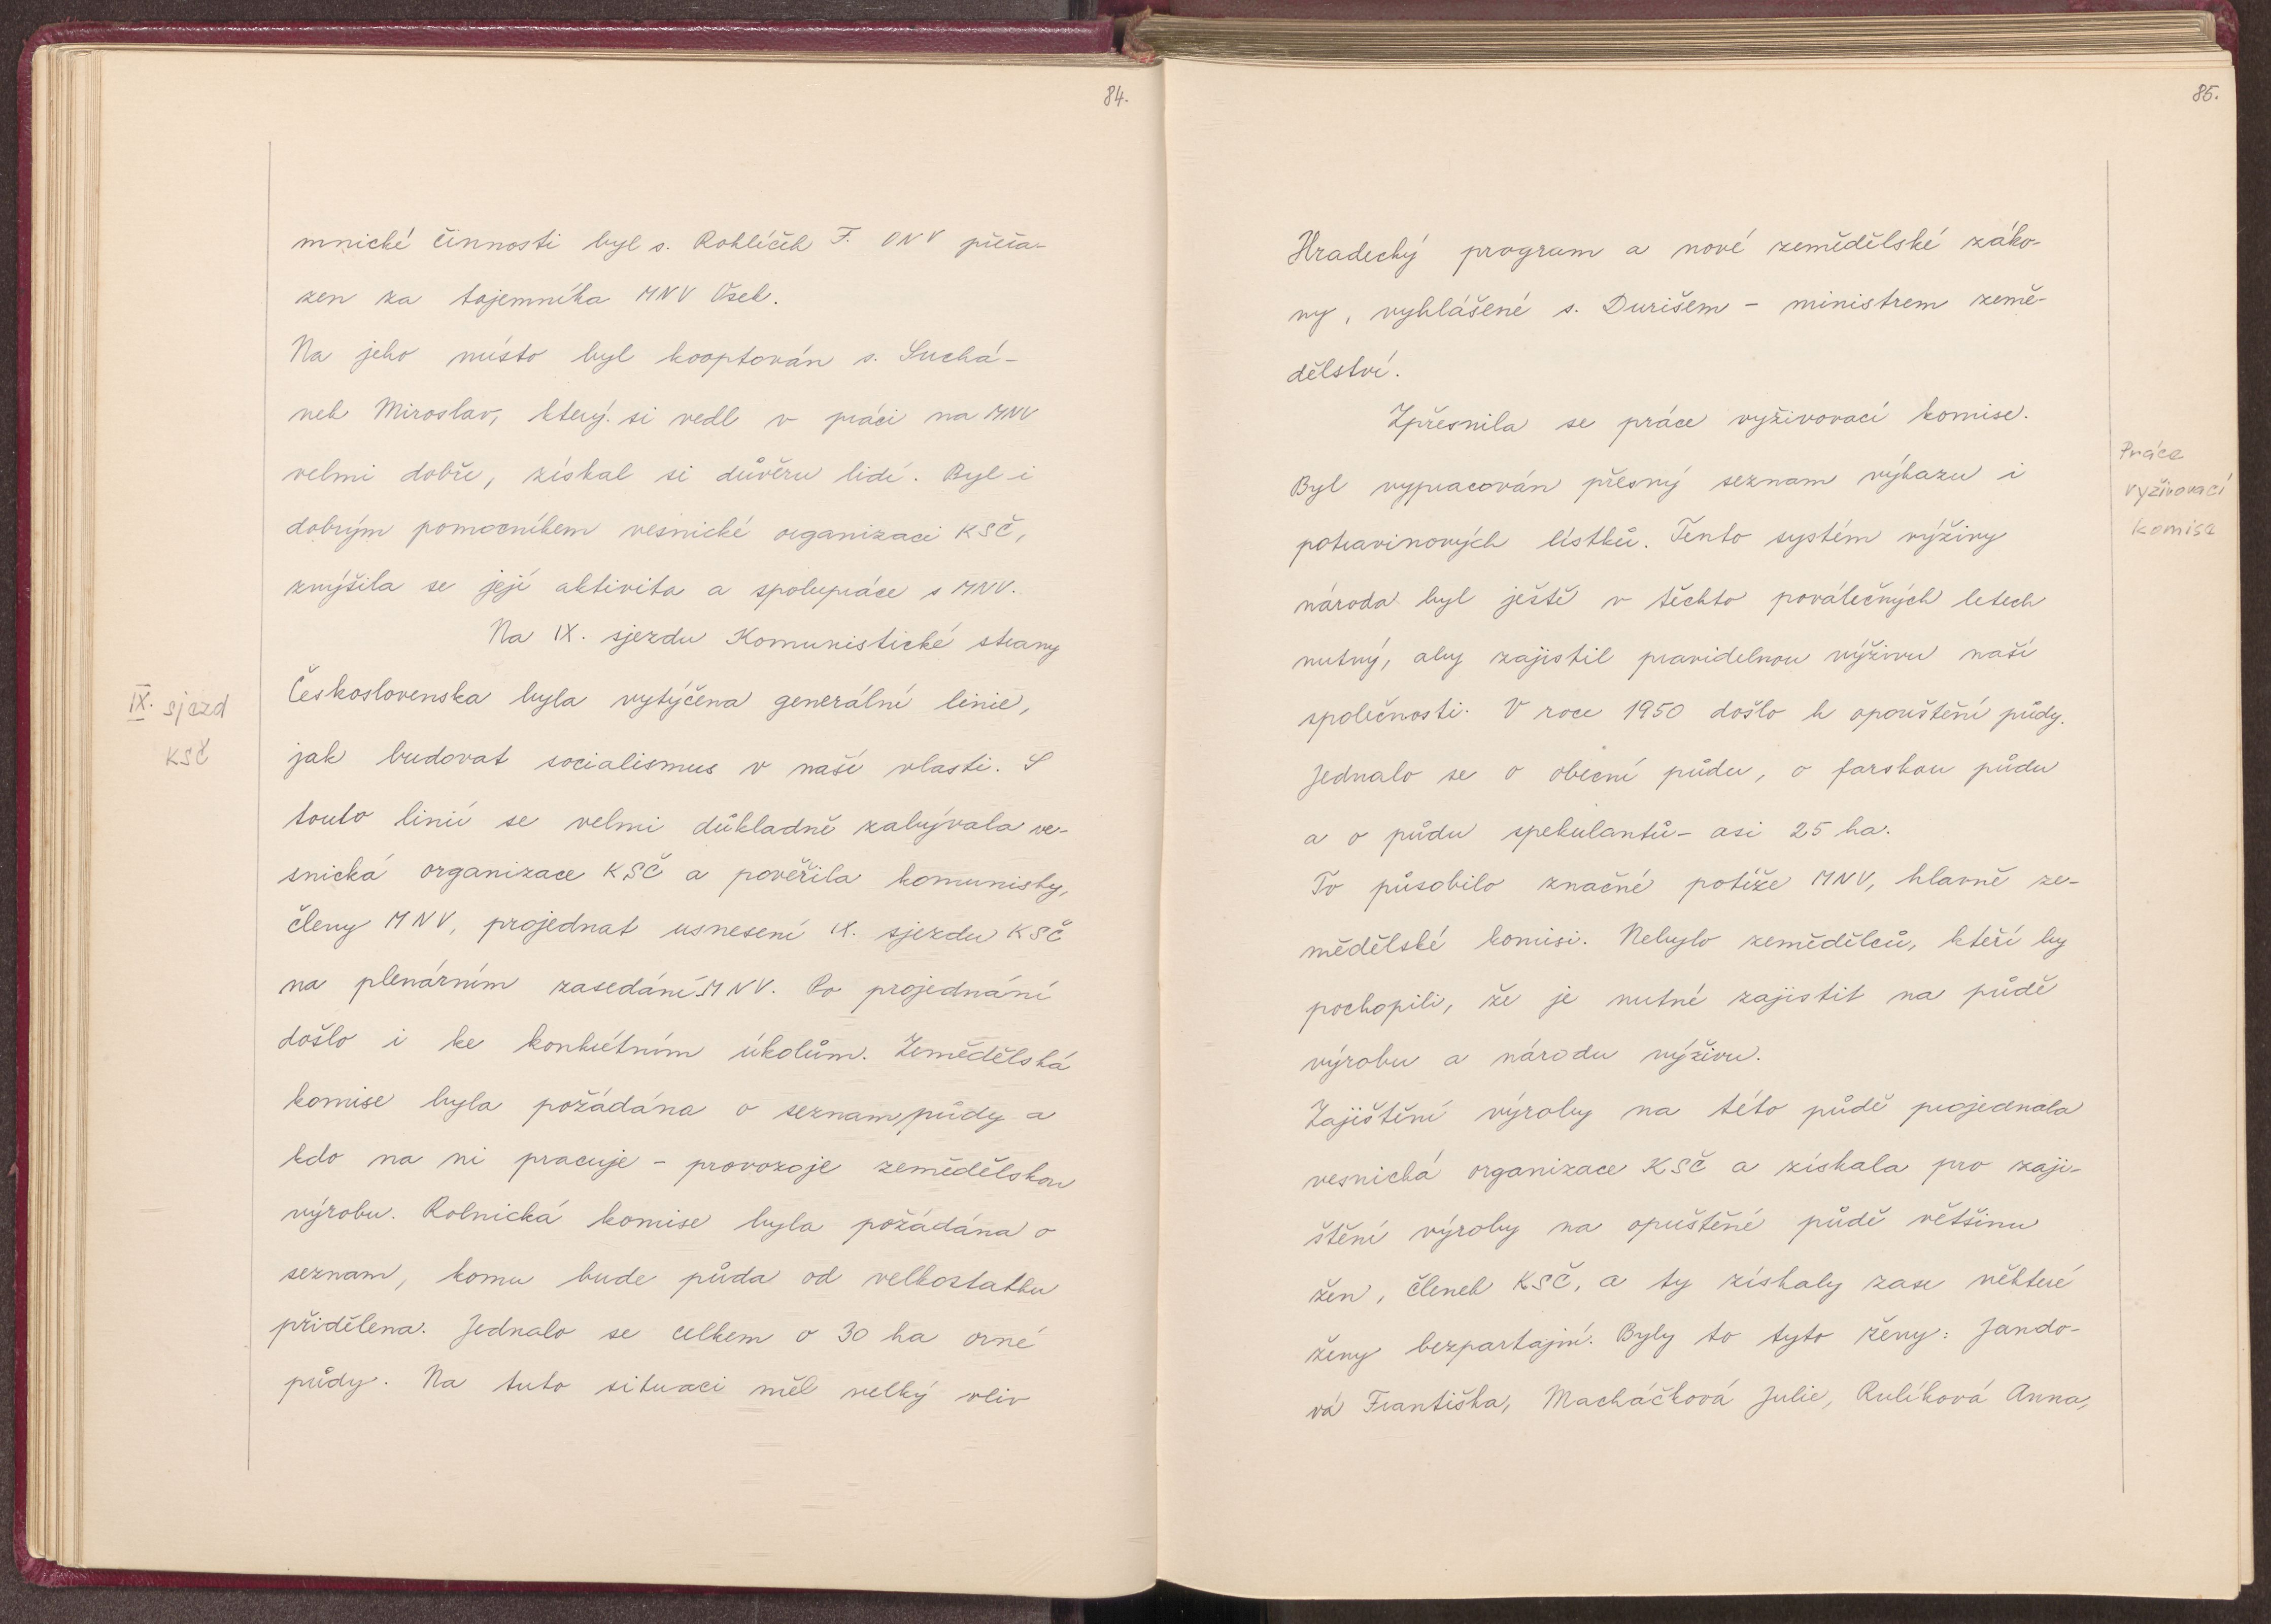 84.
mnické činnosti byl s. Rohlíček F. ONV přeřa-
zen za tajemníka MNV Osek.
Na jeho místo byl kooptován s. Suchá-
nek Miroslav, který si vedl v práci na MNV
velmi dobře, získal si důvěru lidí. Byl i
dobrým pomocníkem vesnické organizaci KSČ,
zvýšila se její aktivita a spolupráce s MNV.
Na IX. sjezdu Komunistické strany
IX. sjezd
KSČ
Československa byla vytýčena generální linie,
jak budovat socialismus v naší vlasti. S
touto linií se velmi důkladně zabývala ve-
snická organizace KSČ a pověřila komunisty,
členy MNV, projednat usnesení IX. sjezdu KSČ
na plenárním zasedání MNV. Po projednání
došlo i ke konkrétním úkolům. Zemědělská
komise byla požádána o seznam půdy a
kdo na ni pracuje - provozoje zemědělskou
výrobu. Rolnická komise byla požádána o
seznam, komu bude půda od velkostatku
přidělena. Jednalo se celkem o 30 ha orné
půdy. Na tuto situaci měl velký vliv
85.
Hradecký program a nové zemědělské záko-
ny, vyhlášené s. Durišem - ministrem země-
dělství.
Zpřesnila se práce vyživovací komise.
Práce
vyživovací
komise
Byl vypracován přesný seznam výkazu i
potravinových lístků. Tento systém výživy
národa byl ještě v těchto poválečných letech
nutný, aby zajistil pravidelnou výživu naší
společnosti. V roce 1950 došlo k opouštění půdy.
Jednalo se o obecní půdu, o farskou půdu
a o půdu spekulantů - asi 25 ha.
To působilo značné potíže MNV, hlavně ze-
mědělské komisi. Nebylo zemědělců, kteří by
pochopili, že je nutné zajistit na půdě
výrobu a národu výživu.
Zajištění výroby na této půdě projednala
vesnická organizace KSČ a získala pro zaji-
štění výroby na opuštěné půdě většinu
žen, členek KSČ, a ty získaly zase některé
ženy bezpartajní. Byly to tyto ženy: Jando-
vá Františka, Macháčková Julie, Rulíková Anna,